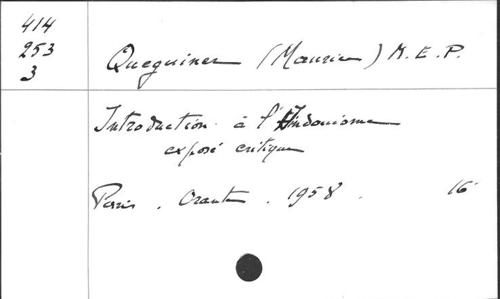 414
253
3
Queguiner (Maurice) M.E.P.
Introduction à l'Hindouisme
exposé critique
Paris. Orante. 1958. 16